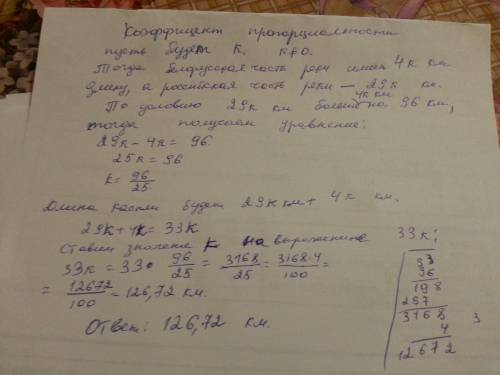 Коэффицент пропорциальности
пусть будет к. к≠0.
Тогда белорусская часть реки имеет 4к км
длину, а российская часть реки — 29к км.
По условию 29к км больше 4к км на 96 км,
тогда получаем уравнение:
29к - 4к = 96
25к = 96
к = 96/25
Длина будет 29к км + 4к км.
29к + 4к = 33к
Ставим значение к на выражение
33к = 33 · 96/25 = 3168/25 = 3168·4/100 =
= 12672/100 = 126,72 км.
Ответ: 126,72 км.
33к:
33
96
198
297
3168
4
12672
3